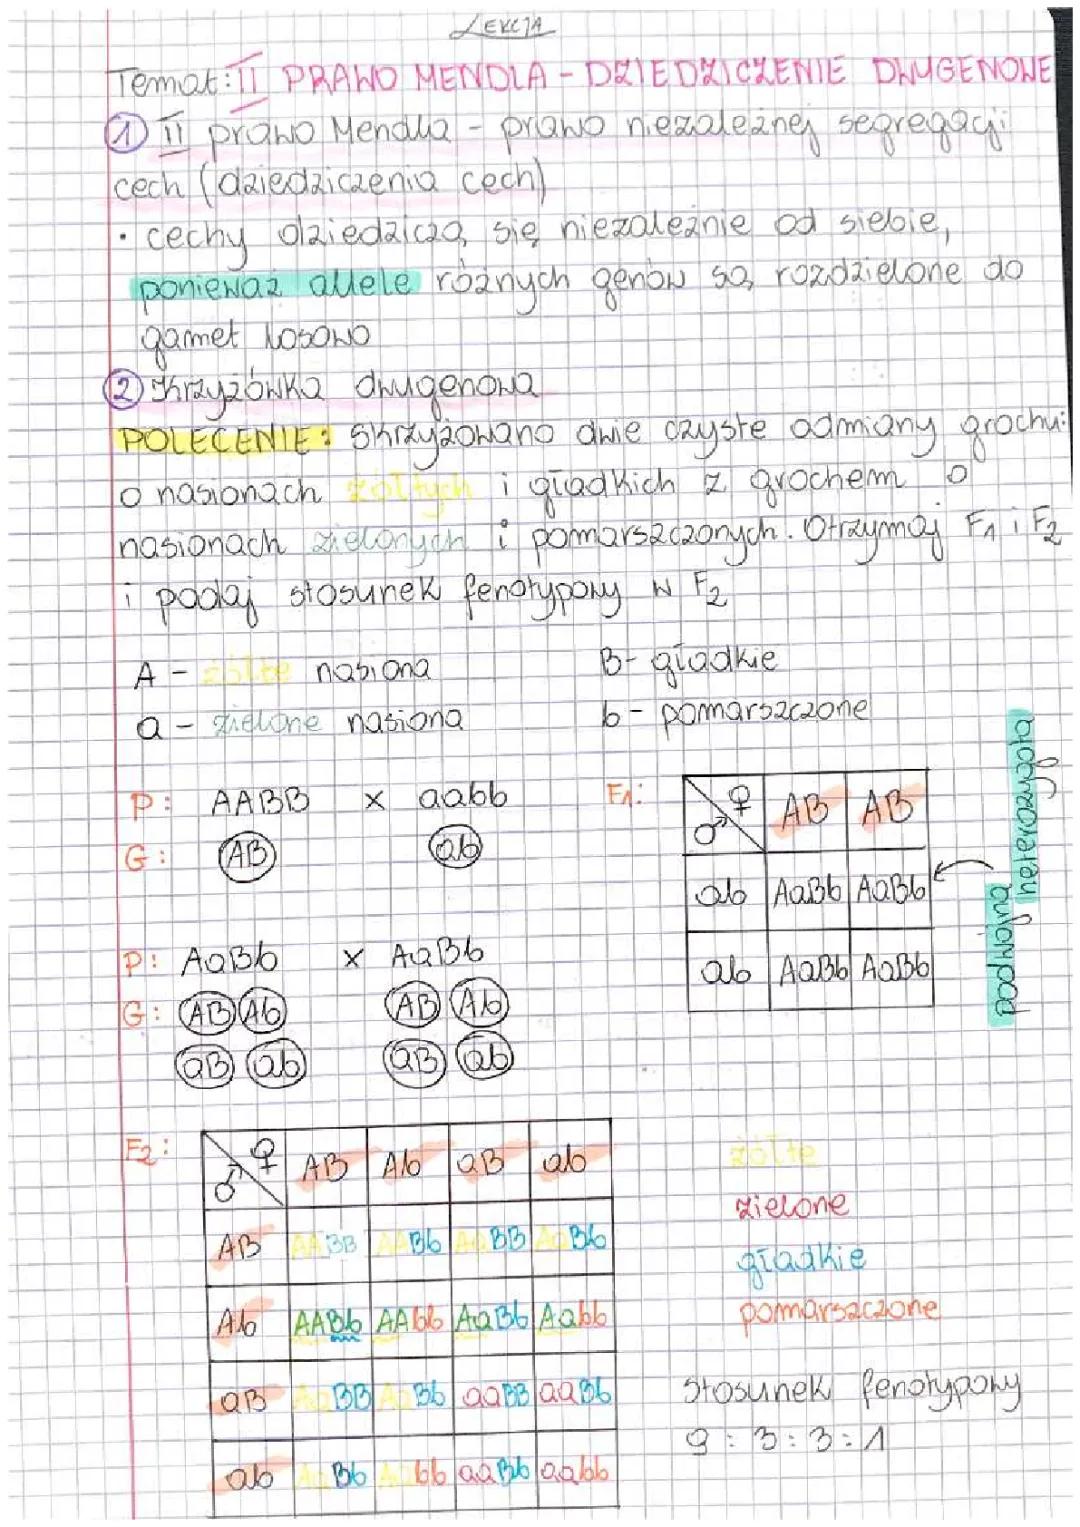 LEKCJA
Temat: II PRAWO MENDLA - DZIEDZICZENIE DWUGENOWE
① II prawo Mendla - prawo niezależnej segregacji
cech (dziedziczenia cech)
• cechy dziedziczą się niezależnie od siebie,
ponieważ allele różnych genów są rozdzielone do
gamet losowo
② Krzyżówka dwugenowa
POLECENIE: Skrzyżowano dwie czyste odmiany grochu:
o nasionach żółtych i gładkich z grochem o
nasionach zielonych i pomarszczonych. Otrzymaj F1 i F2
i podaj stosunek fenotypowy w F2
A - żółte nasiona B- gładkie
a - zielone nasiona b - pomarszczone
P: AABB x aabb
G: AB ab
F1:
♂ ♀ AB AB
ab AaBb AaBb
ab AaBb AaBb
podwójna heterozygota
P: AaBb x AaBb
G: AB Ab AB Ab
aB ab aB ab
F2:
♂ ♀ AB Ab aB ab
AB AABB AABb AaBB AaBb
Ab AABb AAbb AaBb Aabb
aB AaBB AaBb aaBB aaBb
ab AaBb Aabb aaBb aabb
żółte
zielone
gładkie
pomarszczone
Stosunek fenotypowy
9 : 3 : 3 : 1